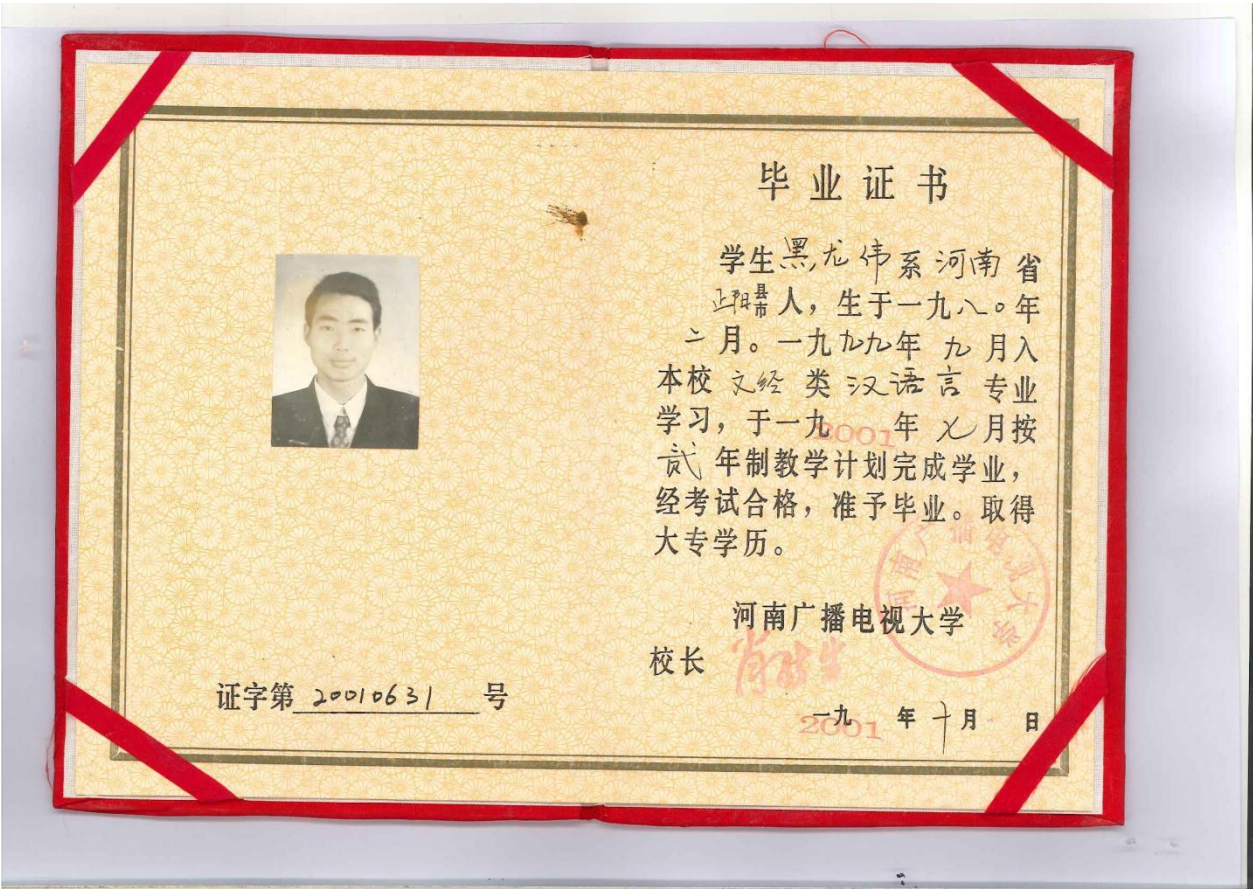 毕业证书
学生黑龙伟系河南省
正阳县市人，生于一九八〇年
二月。一九九九年九月入
本校文经类汉语言专业
学习，于一九2001年七月按
贰年制教学计划完成学业，
经考试合格，准予毕业。取得
大专学历。
河南广播电视大学
河南广播电视大学
校长
一九2001年十月 日
证字第20010631号